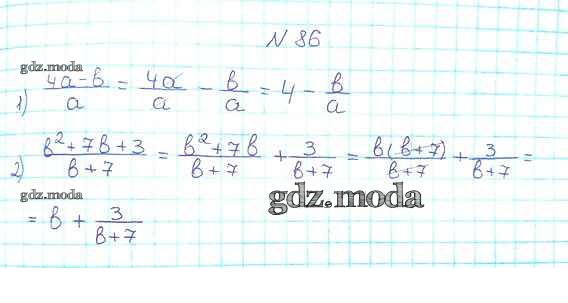 N 86
gdz.moda
1) (4a-b)/a = 4a/a - b/a = 4 - b/a
2) (b²+7b+3)/(b+7) = (b²+7b)/(b+7) + 3/(b+7) = b(b+7)/(b+7) + 3/(b+7) =
gdz.moda
gdz.moda
= b + 3/(b+7)